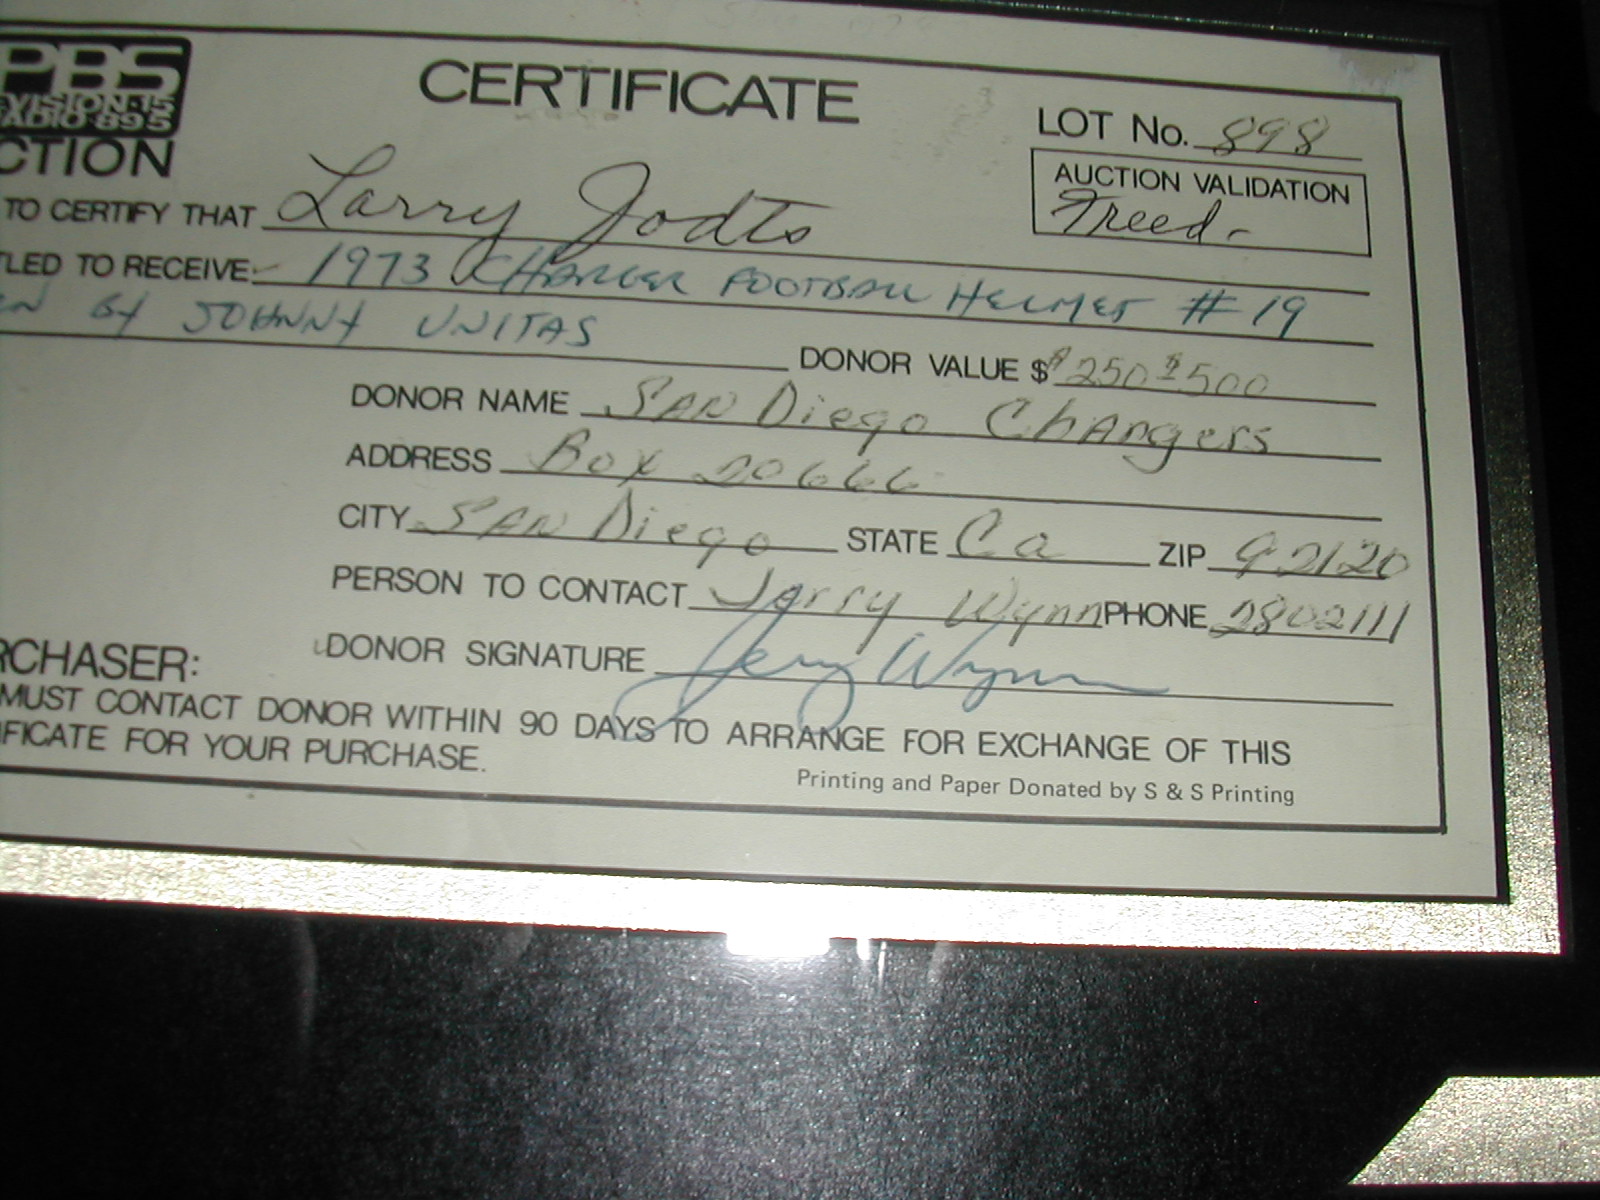 PBS
EVISION·15
ADIO·89.5
CTION
CERTIFICATE
LOT No. 898
AUCTION VALIDATION
Freed-
TO CERTIFY THAT Larry Jodts
TLED TO RECEIVE 1973 CHARGER FOOTBALL HELMET #19
BY JOHNNY UNITAS
DONOR VALUE $ $250 $500
DONOR NAME SAN Diego ChArgers
ADDRESS Box 20666
CITY SAN Diego STATE Ca ZIP 92120
PERSON TO CONTACT Jerry Wynn PHONE 2802111
RCHASER: DONOR SIGNATURE Jerry Wynn
MUST CONTACT DONOR WITHIN 90 DAYS TO ARRANGE FOR EXCHANGE OF THIS
IFICATE FOR YOUR PURCHASE.
Printing and Paper Donated by S & S Printing